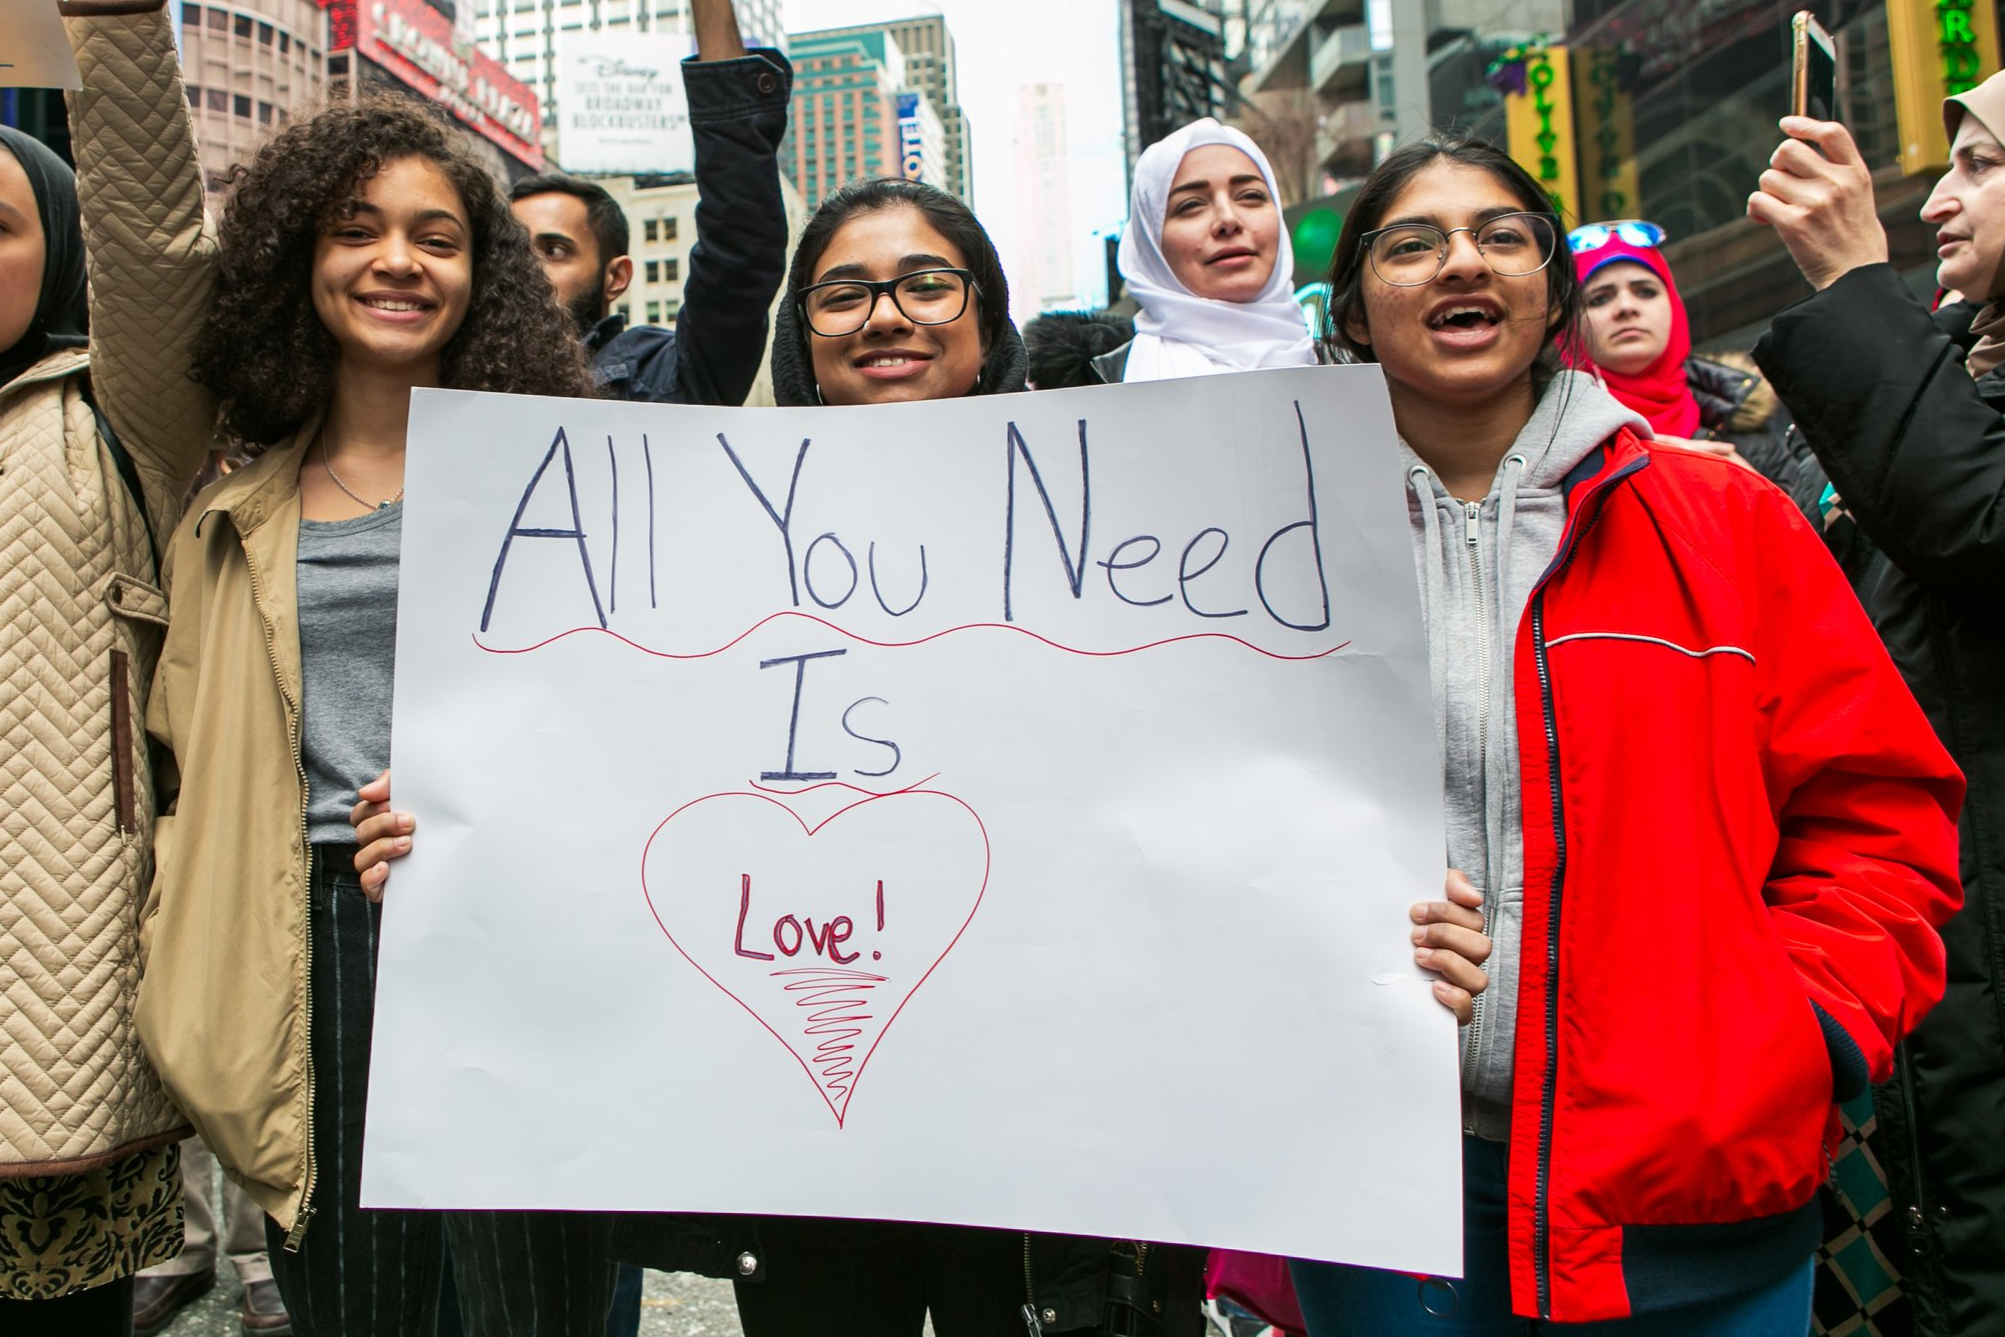 Disney
SETS THE BAR FOR
BROADWAY
BLOCKBUSTERS"
OTEL
OLIVE
RD
All You Need
Is
Love!